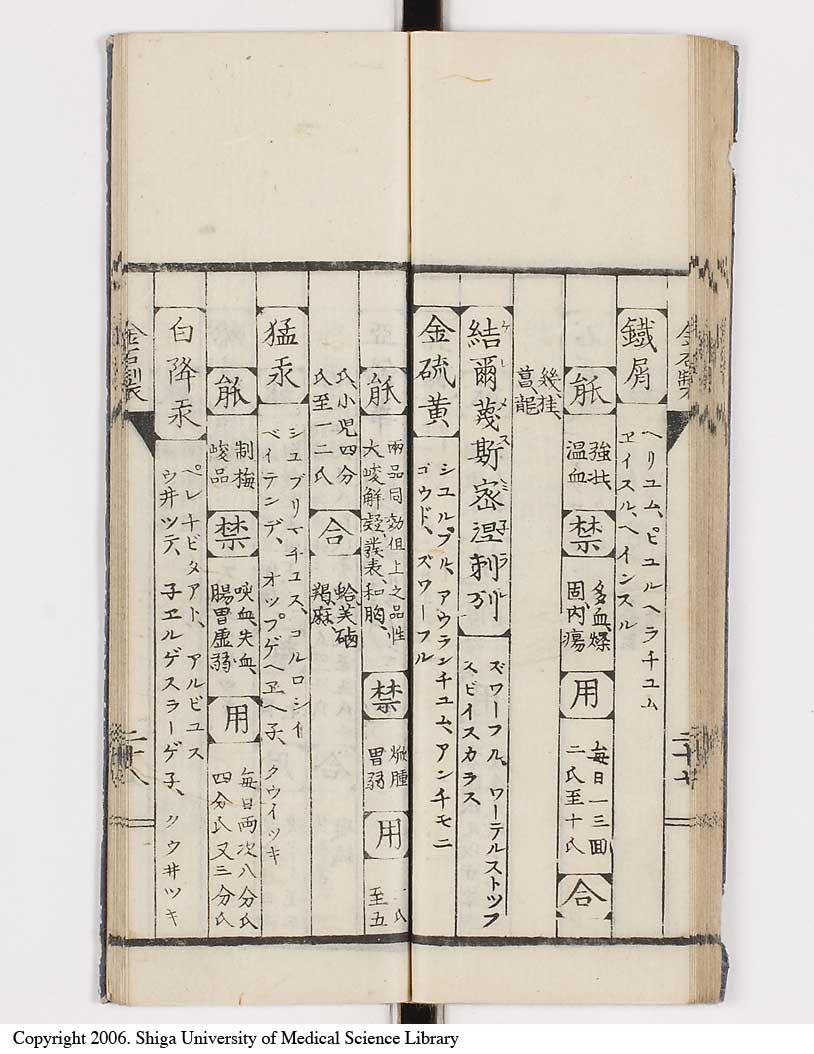 金石製
鐵屑
ヘリユム、ピユルヘラチユム
ヱイスル、ヘインスル
能
強壮、
温血
禁
多血燥
固、内瘍
用
毎日一三回
二氏至十氏
合
幾、桂、
菖、龍
結爾蔑斯密涅剌列
ケルメスミ子ラル
ズワーフル、ワーテルストツフ
スピイスカラス
金硫黄
シユルプル、アウランチユム、アンチモニ
ゴウド、ズワーフル
二十七
能
兩品同効但上之品性
大峻解凝、發表、和胸、
禁
焮腫
胃弱
用
一氏
至五
氏、小児四分
氏至一二氏
合
蛤、芙、硇
羯、麻
猛汞
シユブリマチユス、コルロシイ
ベイテンデ、オップゲヘヱヘ子、クウイッキ
能
制梅
峻品
禁
咳血、失血、
腸胃虚弱
用
毎日両次八分氏
四分氏又三分氏
白降汞
ペレキピタアト、アルビユス
ウ井ツテ、子ヱルゲスラーゲ子、クウ井ツキ
金石製
二十八
Copyright 2006. Shiga University of Medical Science Library